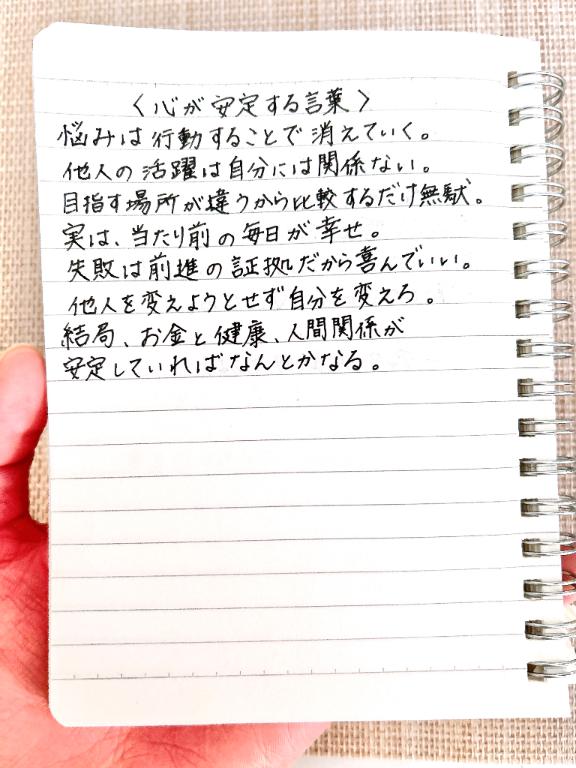 〈心が安定する言葉〉
悩みは行動することで消えていく。
他人の活躍は自分には関係ない。
目指す場所が違うから比較するだけ無駄。
実は、当たり前の毎日が幸せ。
失敗は前進の証拠だから喜んでいい。
他人を変えようとせず自分を変えろ。
結局、お金と健康、人間関係が
安定していればなんとかなる。